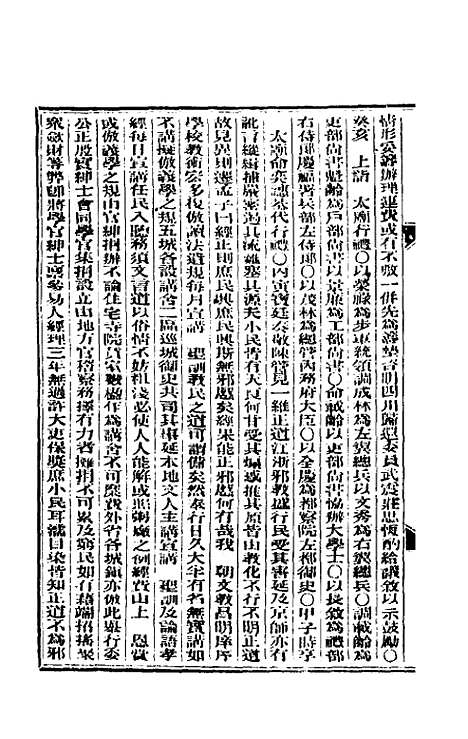 情形妥籌辦理運費或有不敷一併先為籌墊咨明四川歸還委員武震莊思恆酌給議敘以示鼓勵〇
癸亥　上詣　太廟行禮〇以榮祿為步軍統領調成林為左翼總兵以文秀為右翼總兵〇調載齡為
吏部尚書魁齡為戶部尚書以景廉為工部尚書〇命載齡以吏部尚書協辦大學士〇以長敘為禮部
右侍郎慶福署兵部左侍郎〇以茂林為總管內務府大臣〇以全慶為都察院左都御史〇甲子時享
太廟命奕譓恭代行禮〇丙寅寶廷奏敬陳管見一維正道江浙邪教盛行民受其害延及京師亦有
訛言縱緝捕嚴密遏其流難塞其源夫小民皆有天良何甘受其煽或推其原皆由教化不行不明正道
故見異則遷孟子曰經正則庶民興庶民興斯無邪慝矣經果能正邪慝何有哉我　朝文教昌明庠序
學校教術宏多復倣讀法遺規每月宣講　聖訓教民之道可謂備矣然奉行日久大半有名無實講如
不講擬倣義學之規五城各設講舍二區巡城御史共司其事延本地文人主講宣講　聖訓及論語孝
經每日宣講任民入聽務須文言道以俗情不妨粗淺必使人人能解或照粥廠之例經費由上　恩賞
或倣義學之規由官紳捐辦不論住宅寺院買家數楹作為講舍不可糜費外省各城鎮亦倣此舉行委
公正殷實紳士會同學官集捐設立由地方官稽察務擇有力者攤捐不可累及窮民如有藉端招搖聚
眾斂財等弊即將學官紳士懲參易人經理三年無過許大吏保獎庶小民耳濡目染皆知正道不為邪